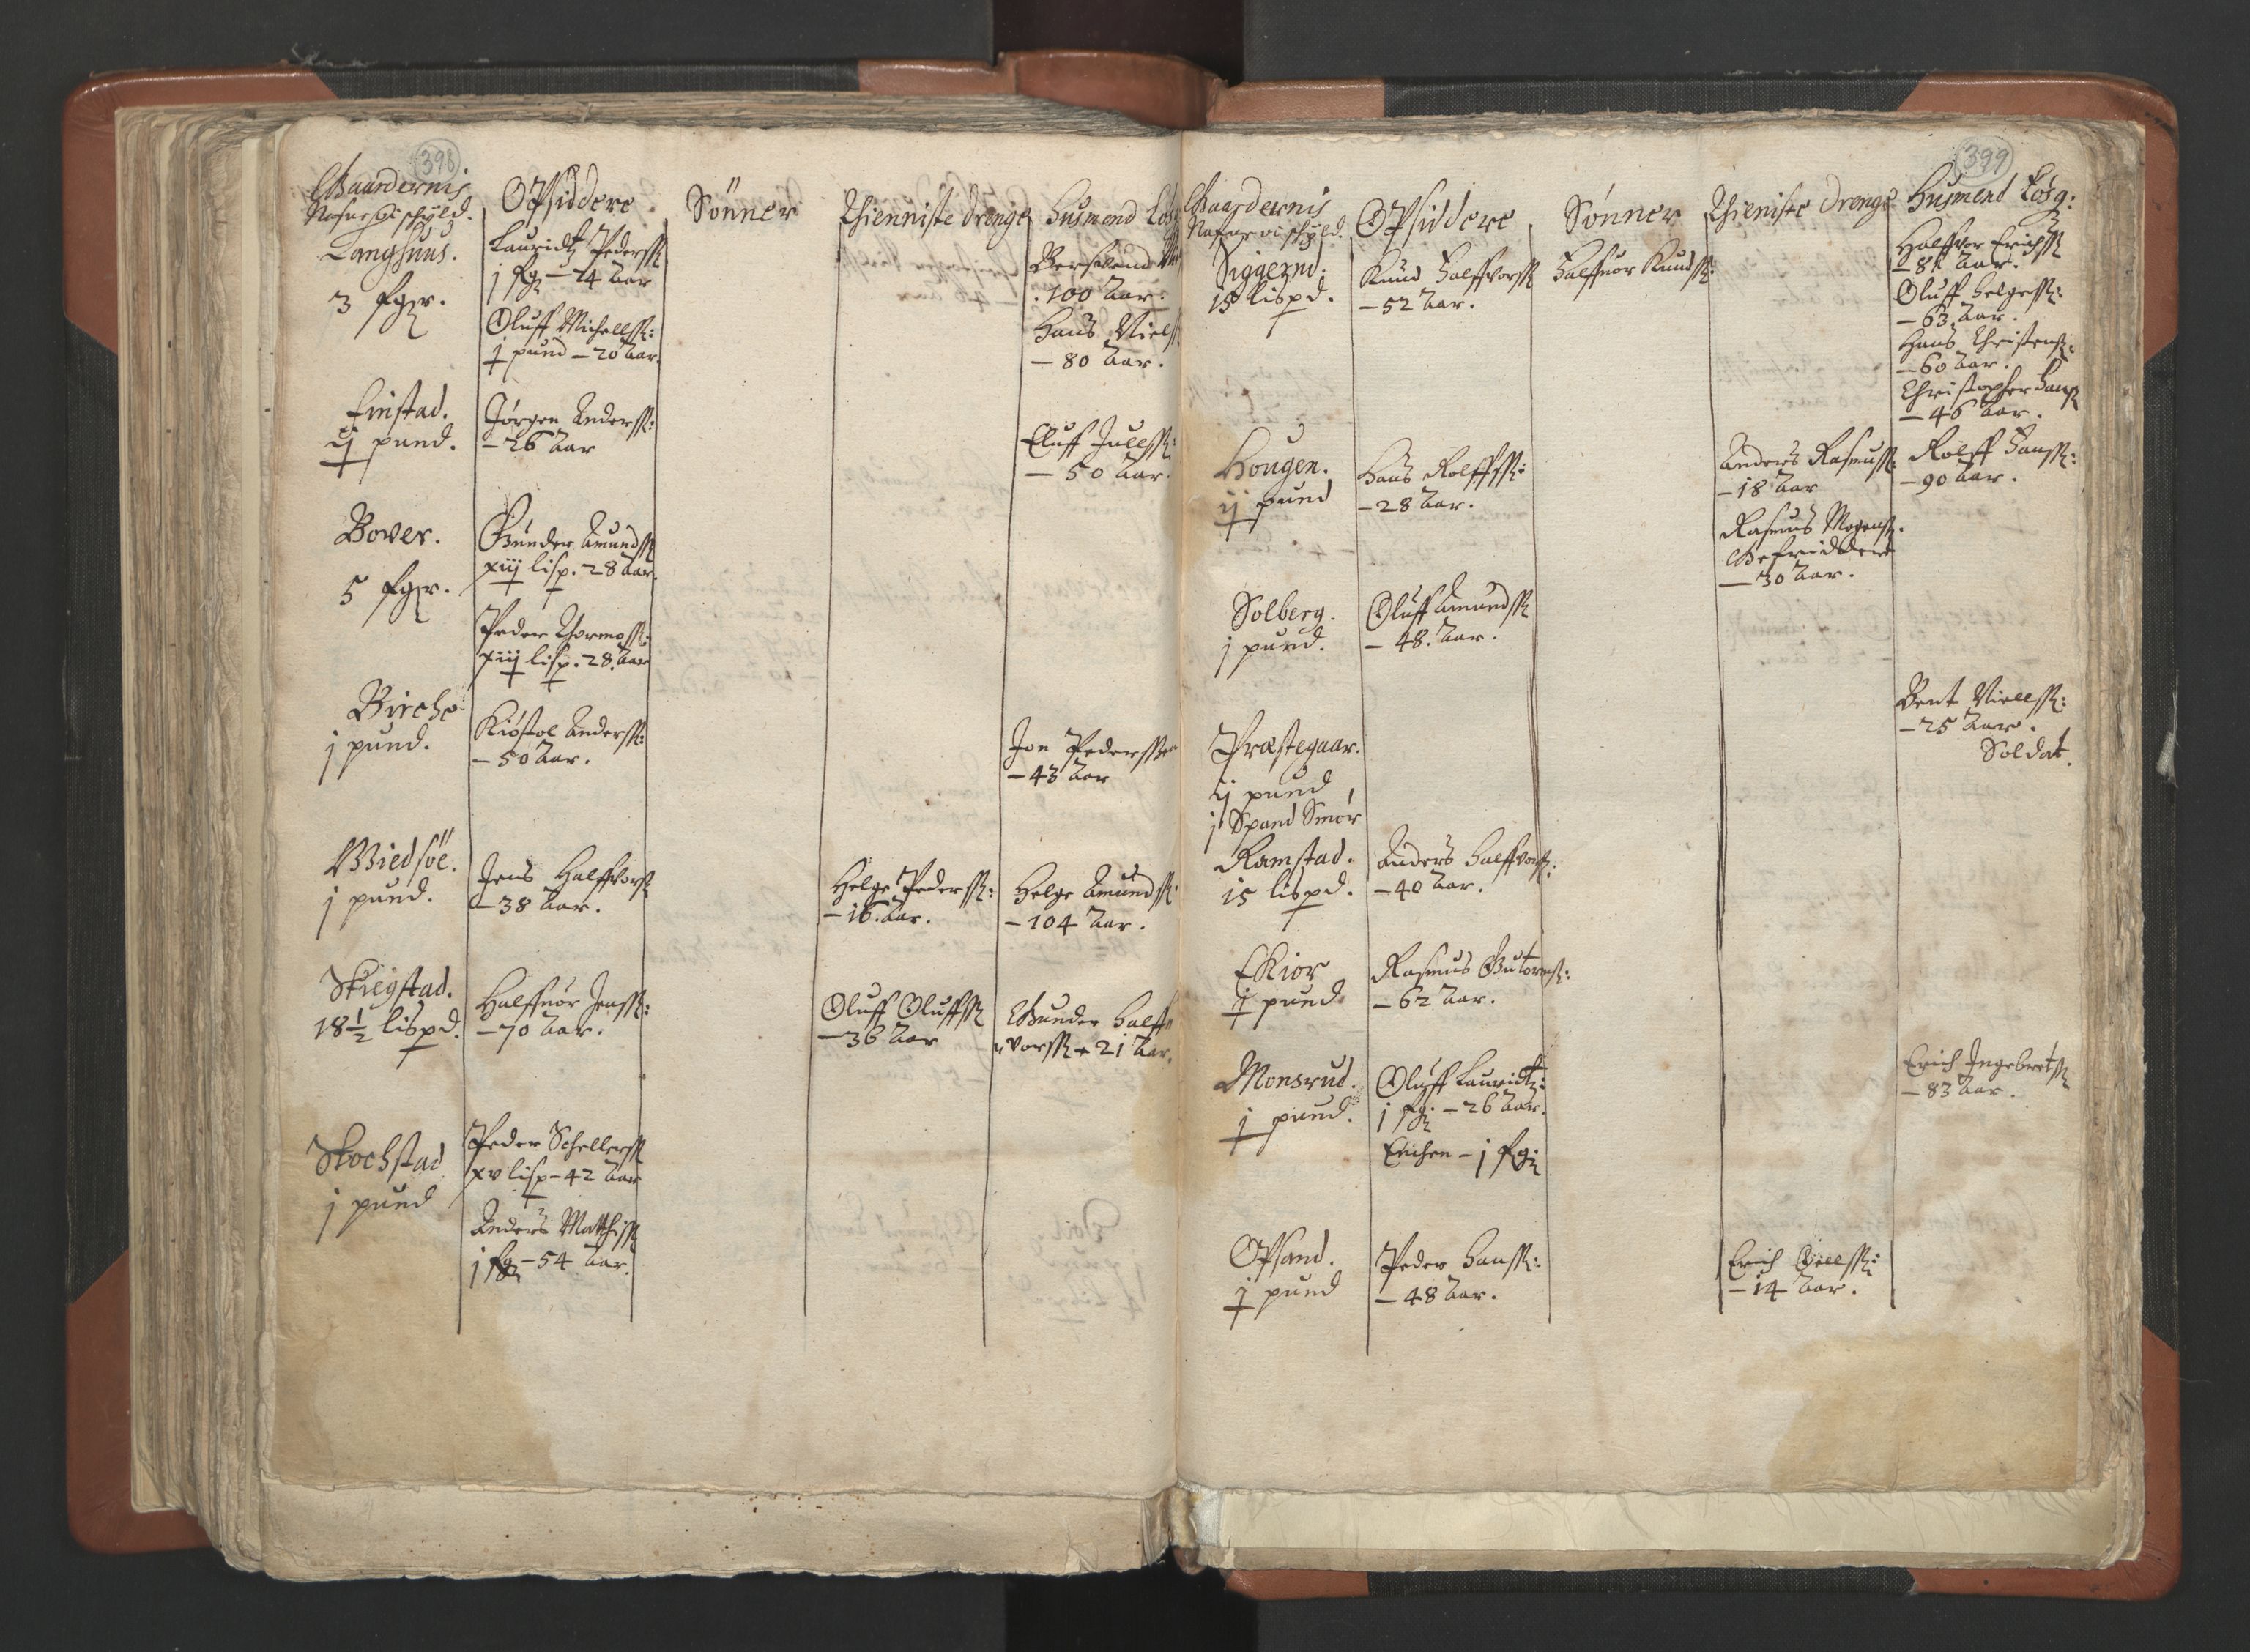 398
Gaardernis
Nafne oc schyld.
Opsiddere
Sönner
Thienniste drenge
Husmend Losg
Langhuus.
3 fgr.
Lauridtz Pederss
j fg – 24 Aar
Oluff Michellss:
j pund – 20 Aar.
100 Aar.
Hans Niels
– 80 Aar.
Einstad.
ij pund.
Jørgen Anderss:
– 26 Aar
Eluff Juelss:
– 50 Aar.
Bover.
5 fgr.
Gunder Amundss
xiij lisp. 28 Aar.
Peder Thormoss:
xiij lisp. 28 Aar
Birche
j pund.
Kiøstol Anderss:
– 50 Aar.
Jon Pederssen
– 43 Aar
Wiedsöe.
j pund.
Jens Halffvorss
– 38 Aar.
Helge Pederss:
– 16. Aar.
Helge Amundss:
– 104 Aar.
Skiegstad.
18½ lispd.
Halffuor Jenss:
– 70 Aar.
Oluff Oluffss
– 36 Aar
Gunder Halff
vorss – 21 Aar.
Skochstad
j pund
Peder Schellerss
xv lisp – 42 Aar
Anders Matthiss
j fg – 54 Aar.
399
Gaardernis
Nafne oc schyld.
Opsiddere
Sønner
Thieniste drenge
Husmend Losg:
Siggerud.
15 lispd.
Knud Halffvorss
– 52 Aar.
Halffuor Knudss:
Halffvor Erichss
Aar.
Oluff Helgess:
– 63. Aar.
Hans Christenss:
– 60 Aar.
Christopher Hanss
– 46 Aar.
Hougen.
ij pund
Hans Rolffss:
– 28 Aar.
Anders Rasmuss:
– 18 Aar
Rasmus Mogenss.
– 30 Aar.
Rolff Hanss:
– 90 Aar.
Solberg.
j pund.
Oluff Amundss
– 48. Aar.
Præstegaar.
ij pund
j Spand Smør
Bent Nielss:
– 25 Aar.
Soldat.
Ramstad.
15 lispd.
Anders Halffvorss:
– 40 Aar.
Ekior
j pund
Rasmus Gutormss:
– 62 Aar.
Monsrud.
j pund.
Oluff Lauridtz:
j fg: – 26 Aar.
Enchen – j fg:
Erich Ingebretss
– 83 Aar.
Opsand.
j pund
Peder Hanss:
– 48 Aar.
Erich
– 14 Aar.